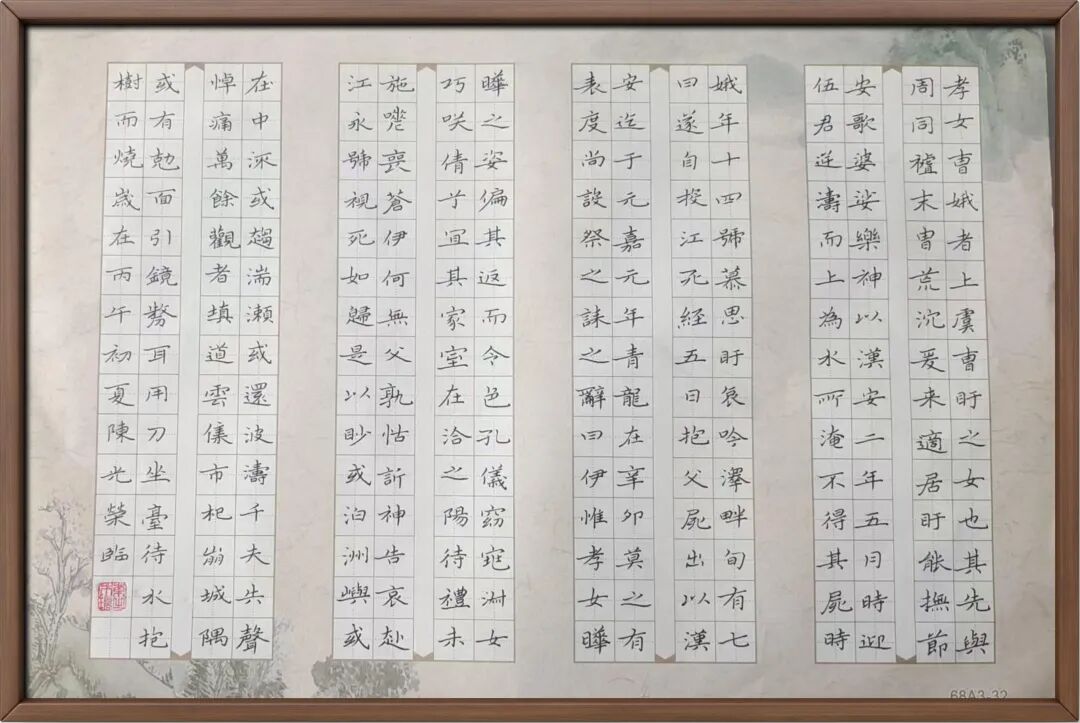 孝女曹娥者上虞曹盱之女也其先與
周同末胄荒沉爰来適居盱能撫節
安歌婆娑樂神以漢安二年五月時迎
伍君逆濤而上為水所淹不得其屍時
娥年十四號慕思盱哀吟澤畔旬有七
日遂自投江死經五日抱父屍出以漢
安迄于元嘉元年青龍在辛卯莫之有
表度尚設祭之誄之辭曰伊惟孝女曄
曄之姿偏其返而令色孔儀窈窕淑女
巧咲倩兮宜其家室在洽之陽待禮未
施嗟喪蒼伊何無父孰怙訴神告哀赴
江永號視死如歸是以眇或泊洲嶼或
在中流或趨湍瀨或還波濤千夫失聲
悼痛萬餘觀者填道雲市杞崩城隅
或有勊面引鏡剺耳用刀坐臺待水抱
樹而燒歲在丙午初夏陳光榮臨
68A3-32